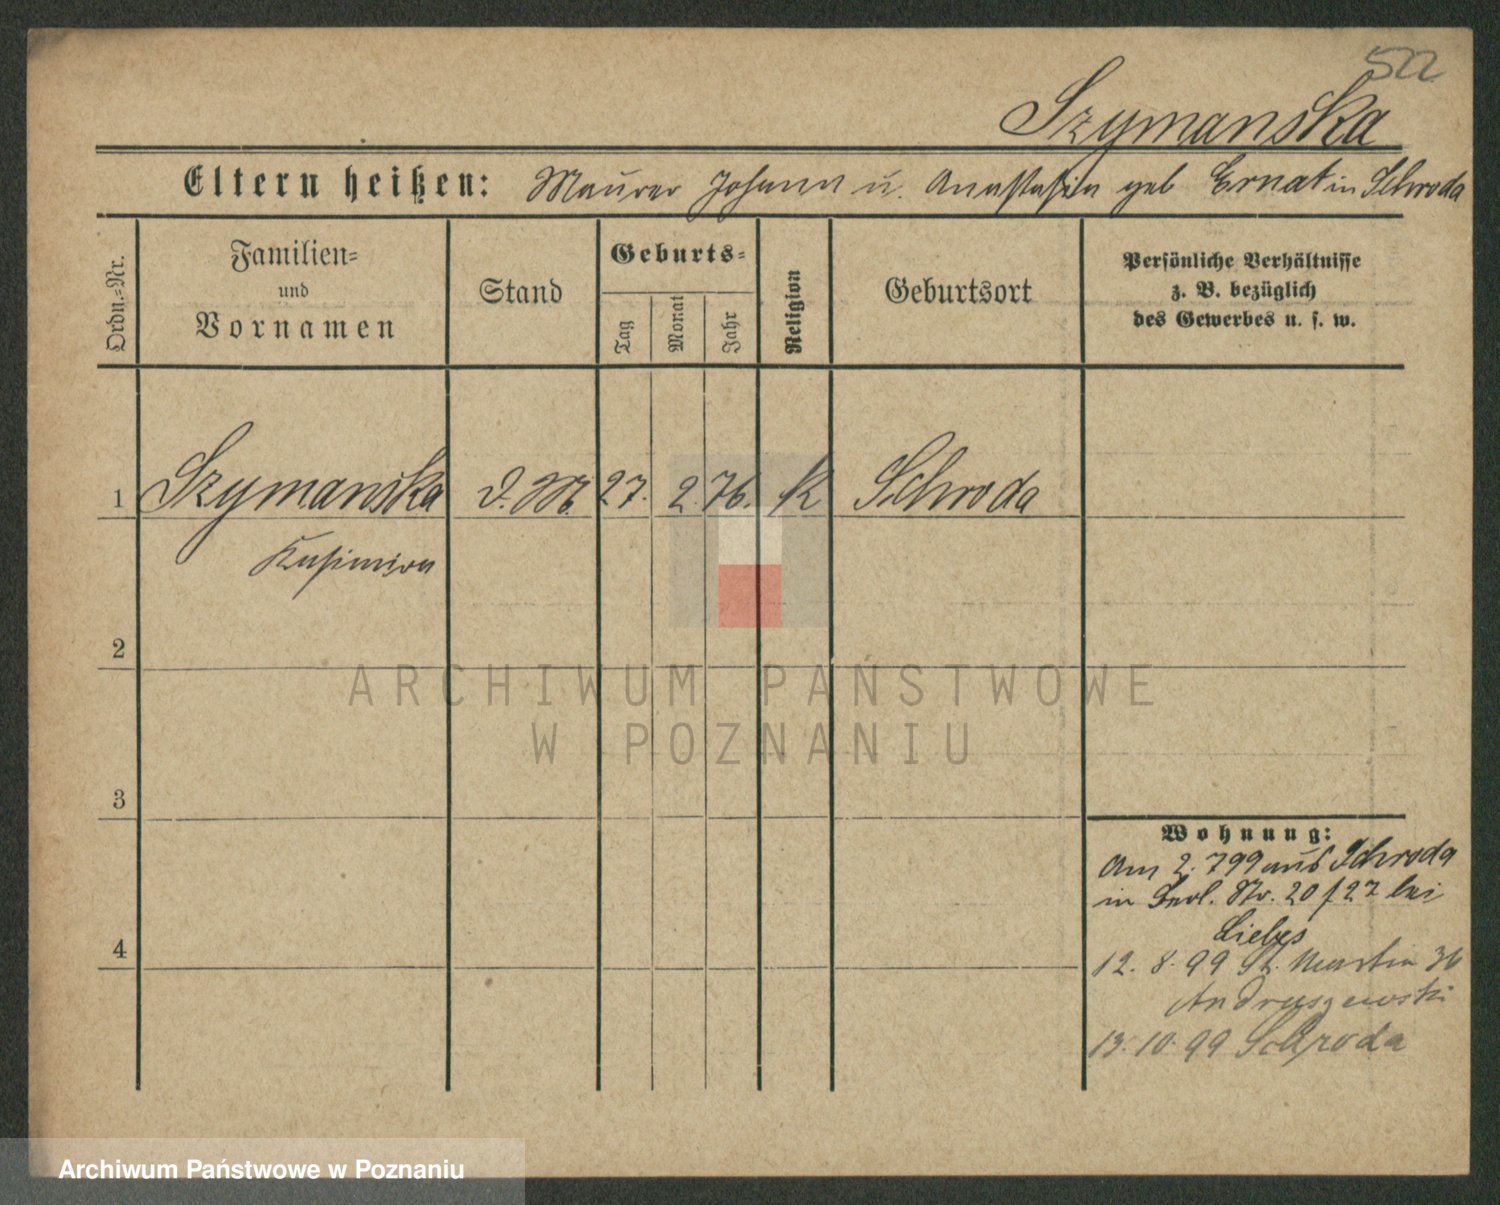 522
Szymanska
Eltern heißen: Maurer Johann u. Anastasia geb Ernat in Schroda
Ordn.-Nr.
Familien-
und
Vornamen
Stand
Geburts-
Tag
Monat
Jahr
Religion
Geburtsort
Persönliche Verhältnisse
z. B. bezüglich
des Gewerbes u. s. w.
1 Szymanska D. M. 27. 2. 76. K Schroda
Kasimira
2
3
4
Wohnung:
Am 2. 7 99 aus Schroda
in Str. 20 bei
12. 8. 99 St. Martin 36
Andruszewski
13. 10. 99 Schroda
ARCHIWUM PAŃSTWOWE
W POZNANIU
Archiwum Państwowe w Poznaniu